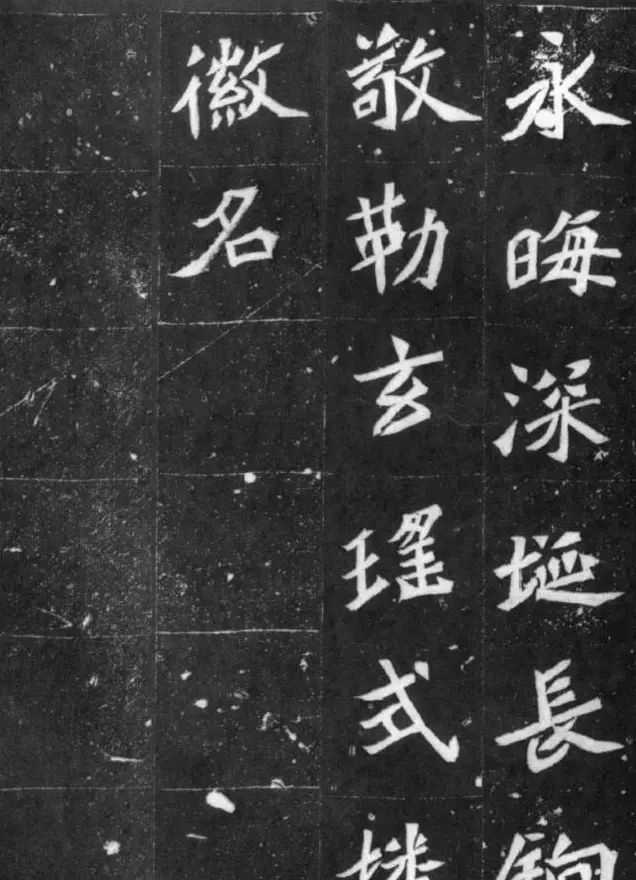 永晦深埏長
敬勒玄瑤式
徽名